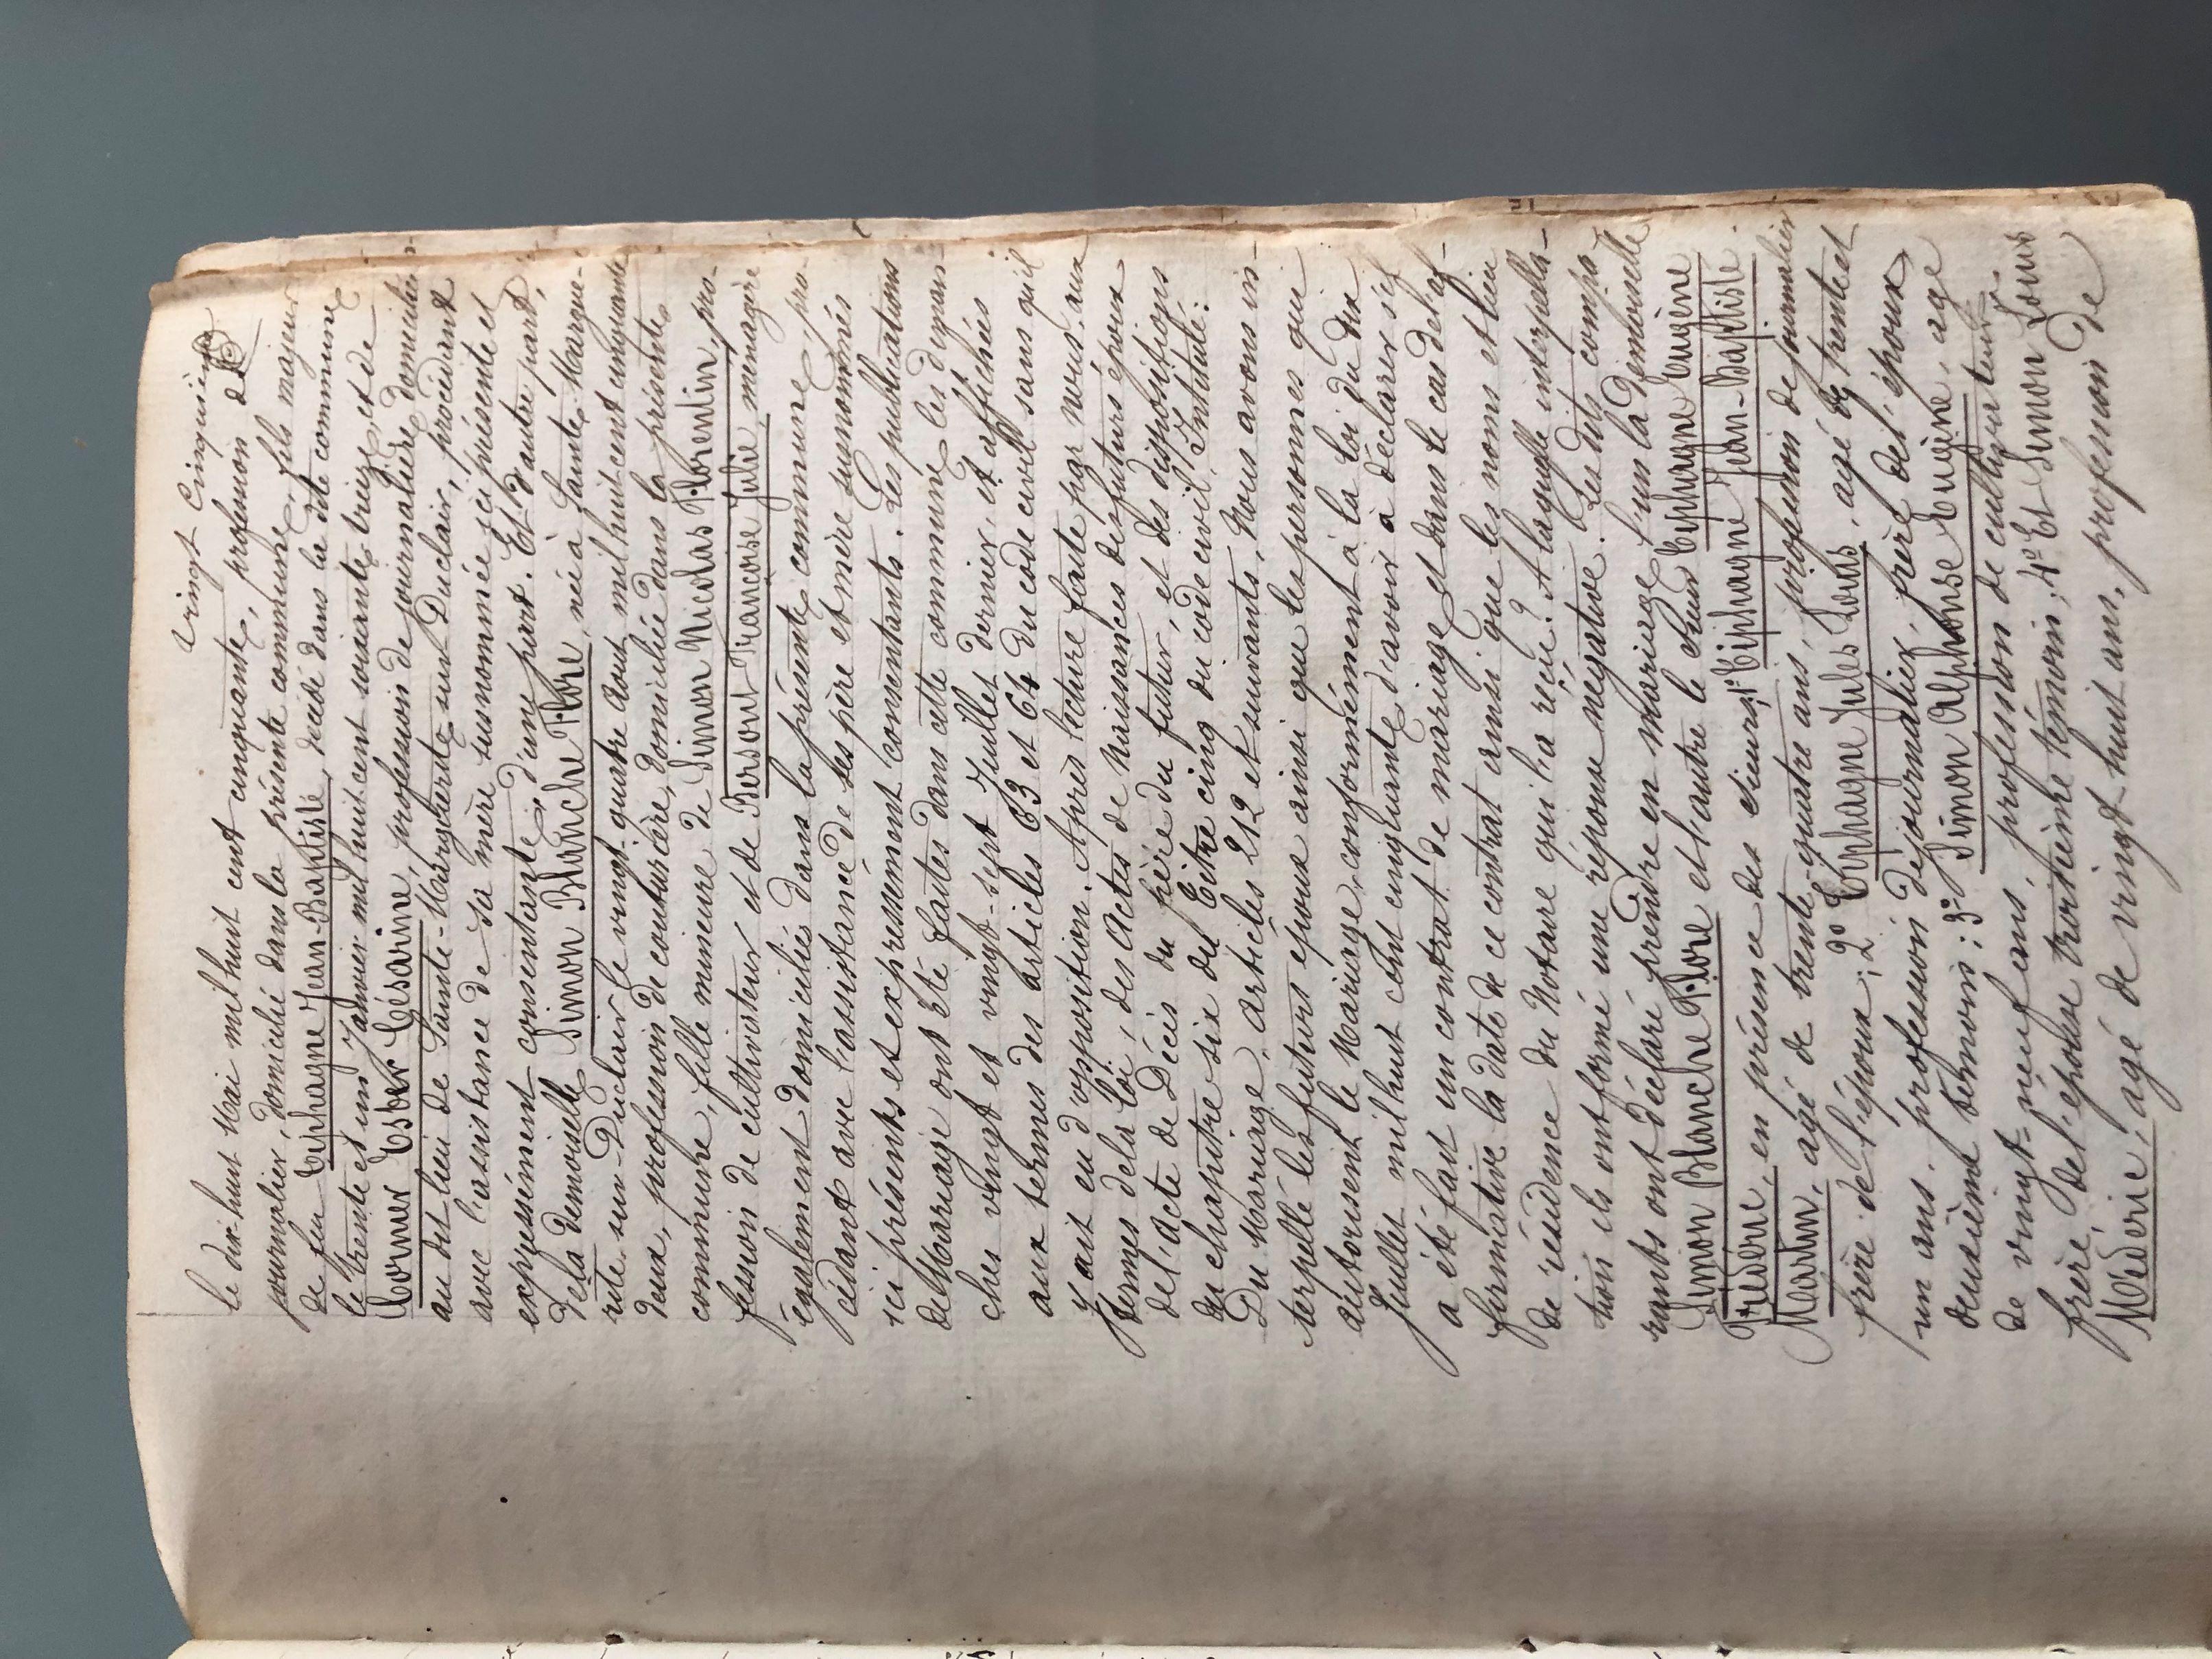 Vingt Cinquième
le dix huit Mai mil huit cent cinquante, profession de
journalier, domicilié dans la présente commune, fils majeur
de feu Tiphagne Jean-Baptiste, décédé dans la dite commune
le trente et un Janvier mil huit cent soixante treize, et de
Corner Ester Césarine, profession de journalière, domiciliée
au dit lieu de Sainte-Marguerite sur Duclair, procédant
avec l'assistance de sa mère susnommée ici présente et
expressément consentante, d'une part. Et d'autre part,
de la demoiselle Simon Blanche Flore, née à Sainte Margue-
rite-sur-Duclair le vingt-quatre Aout mil huit cent cinquante
deux, profession de couturière, domiciliée dans la présente
commune, fille mineure de Simon Nicolas Florentin, pro-
fession de cultivateur et de Persont Francoise Julie, ménagère
également domiciliés dans la présente commune, pro-
cédant avec l'assistance de ses père et mère susnommés
ici présents et expressément consentants. Les publications
de Mariage ont été faites dans cette commune les diman-
ches vingt et vingt-sept Juillet dernier, et affichées
aux termes des articles 63 et 64 du code civil sans qu'il
y ait eu d'opposition. Après lecture faite par nous, aux
termes de la loi, des Actes de Naissances des futurs époux
de l'acte de Décès du père du futur, et des dispositions
du chapitre six du Titre cinq du code civil, Intitulé:
Du Mariage, articles 212 et suivants, Nous avons in-
terpellé les futurs époux ainsi que les personnes qui
autorisent le Mariage, conformément à la loi du dix
Juillet mil huit cent cinquante, d'avoir à déclarer s'il
a été fait un contrat de mariage et dans le cas de l'af-
firmative la date de ce contrat ainsi que les noms et lieu
de résidence du Notaire qui l'a reçu? A laquelle interpella-
tion ils ont formé une réponse négative. Les dits compa-
rants ont déclaré prendre en mariage, l'un la Demoiselle
Simon Blanche Flore et l'autre le sieur Tiphagne Eugène
Frédéric, en présence des sieurs, 1° Tiphagne Jean-Baptiste
Martin, agé de trente-quatre ans, profession de journalier
frère de l'époux; 2° Tiphagne Jules Louis, agé de trente et
un ans, profession de journalier, frère de l'époux,
deuxième témoin; 3° Simon Alphonse Eugène, age
de vingt-neuf ans, profession de cultivateur,
frère de l'épouse troisième témoin; 4° Et Simon Louis
Médéric, agé de vingt huit ans, profession de